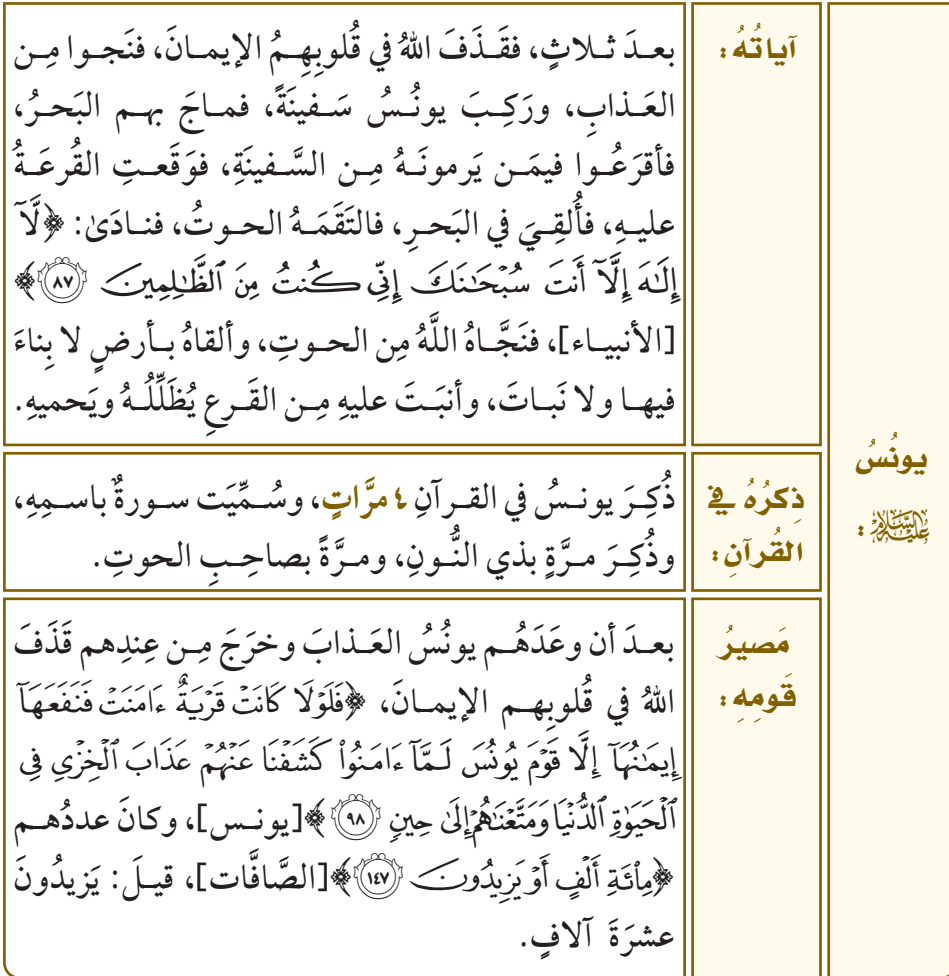 يونُسُ
عَلَيْهِ السَّلَامُ :
آياتُهُ :
بعدَ ثلاثٍ، فقَذَفَ اللهُ في قُلوبِهِمُ الإيمانَ، فنَجوا مِن
العَذابِ، ورَكِبَ يونُسُ سَفينَةً، فماجَ بهم البَحرُ،
فأقرَعُوا فيمَن يَرمونَهُ مِن السَّفينَةِ، فوَقَعتِ القُرعَةُ
عليهِ، فأُلقِيَ في البَحرِ، فالتَقَمَهُ الحوتُ، فنادَىٰ: ﴿لَّآ
إِلَٰهَ إِلَّآ أَنتَ سُبْحَٰنَكَ إِنِّي كُنتُ مِنَ ٱلظَّٰلِمِينَ ۝٨٧﴾
[الأنبياء]، فنَجَّاهُ اللَّهُ مِن الحوتِ، وألقاهُ بأرضٍ لا بِناءَ
فيها ولا نَباتَ، وأنبَتَ عليهِ مِن القَرعِ يُظَلِّلُهُ ويَحميهِ.
ذِكرُهُ في
القُرآنِ :
ذُكِرَ يونسُ في القرآنِ ٤ مرَّاتٍ، وسُمِّيَت سورةٌ باسمِهِ،
وذُكِرَ مرَّةٍ بذي النُّونِ، ومرَّةً بصاحِبِ الحوتِ.
مَصيرُ
قَومِهِ :
بعدَ أن وعَدَهُم يونُسُ العَذابَ وخرَجَ مِن عِندِهم قَذَفَ
اللهُ في قُلوبِهم الإيمانَ، ﴿فَلَوْلَا كَانَتْ قَرْيَةٌ ءَامَنَتْ فَنَفَعَهَآ
إِيمَٰنُهَآ إِلَّا قَوْمَ يُونُسَ لَمَّآ ءَامَنُواْ كَشَفْنَا عَنْهُمْ عَذَابَ ٱلْخِزْيِ فِي
ٱلْحَيَوٰةِ ٱلدُّنْيَا وَمَتَّعْنَٰهُمْ إِلَىٰ حِينٍ ۝٩٨﴾ [يونس]، وكانَ عددُهم
﴿مِاْئَةِ أَلْفٍ أَوْ يَزِيدُونَ ۝١٤٧﴾ [الصَّافَّات]، قيلَ: يَزيدُونَ
عشرَةَ آلافٍ.